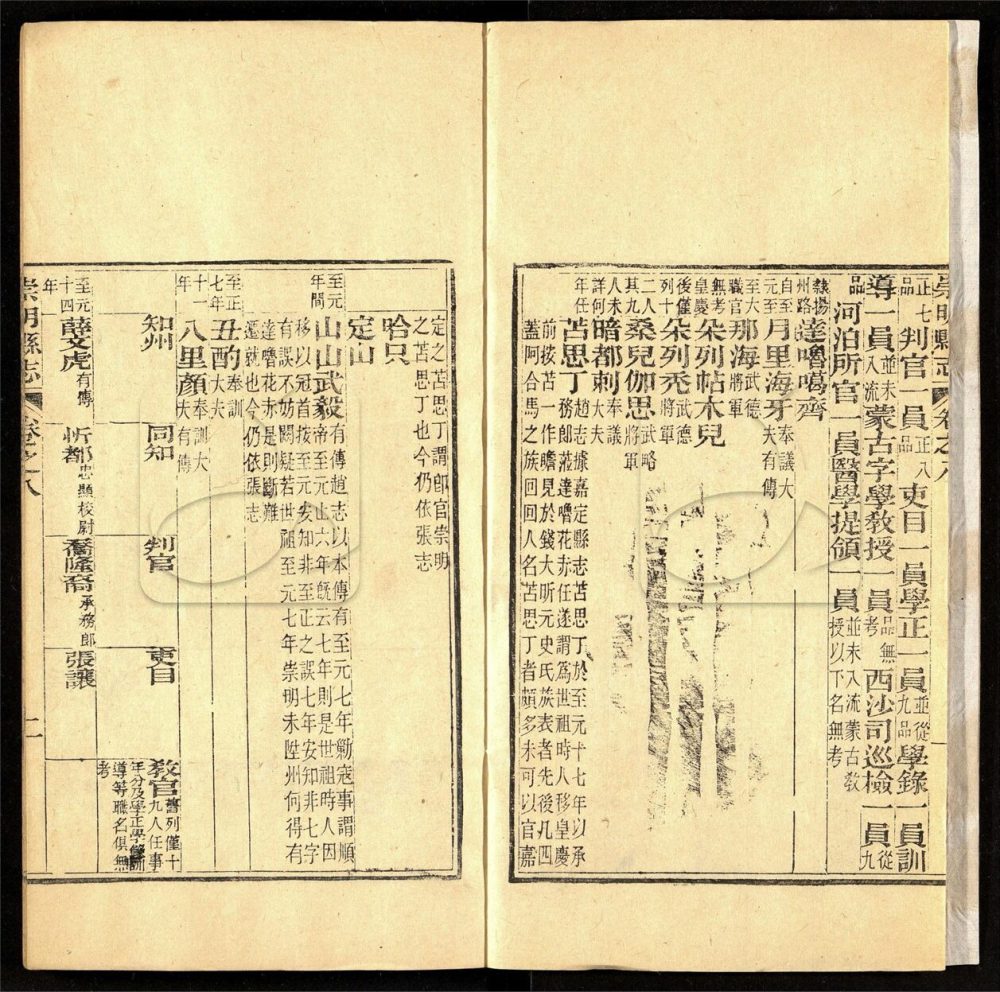 崇明縣志 卷之八
正七品判官一員正八品吏目一員學正一員並從九品學錄一員訓
導一員並未入流蒙古字學教授一員品無考西沙司巡檢一員從九
品河泊所官一員醫學提領一員並未入流蒙古教授以下名無考
隸揚州路達嚕噶齊
自至元至月里海牙奉議大夫有傳
至大職官那海武德將軍
無考皇慶朵列帖木兒
後僅列十朵列禿武德將軍
二人其九桑兒伽思武略將軍
人未詳何暗都剌奉議大夫
年任苫思丁趙志據嘉定縣志苫思丁於至元十七年以承務郎蒞達嚕花赤任遂謂為世祖時人移皇慶
前按苫一作贍見於錢大昕元史氏族表者先後凡四
蓋阿合馬之族回回人名苫思丁者頗多未可以官嘉
定之苫思丁謂即官崇明之苫思丁也今仍依張志
哈只
定山
至元年間山山武毅有傳趙志以本傳有至元七年勦寇事謂順帝至元止六年既云七年則是世祖時人因
移以冠首按至元安知非至正之誤七年安知非七字
有誤不妨闕疑若世祖至元七年崇明未陞州何得有
達嚕花赤是則斷難
遷就也今仍依張志
至正七年丑酌奉訓大夫
十一年八里顏奉訓大夫有傳
知州 同知 判官 吏目 教官舊列僅十九人任事年分及學正學錄訓導等職名俱無考
至元十四年薛文虎有傳 忻都忠顯校尉 喬隆裔承務郎 張讓
崇明縣志 卷之八 二